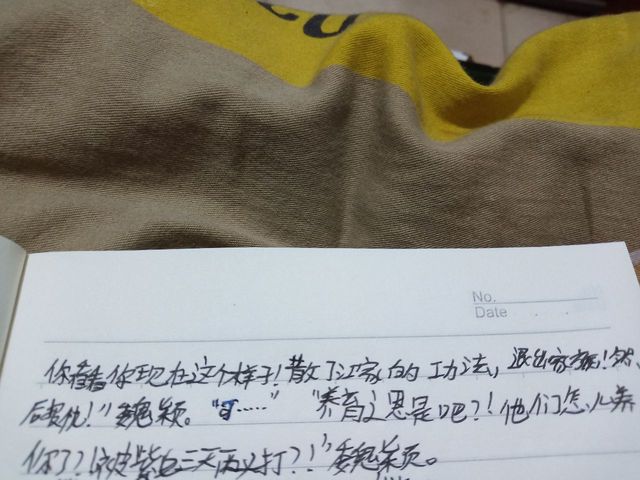 No.
Date
你看看你现在这个样子！散了江家的功法，退出家族！然
后报仇！”魏颖。“可……” “养育之恩是吧？！他们怎么养
你了？！被紫电三天两头打？！”魏颖。